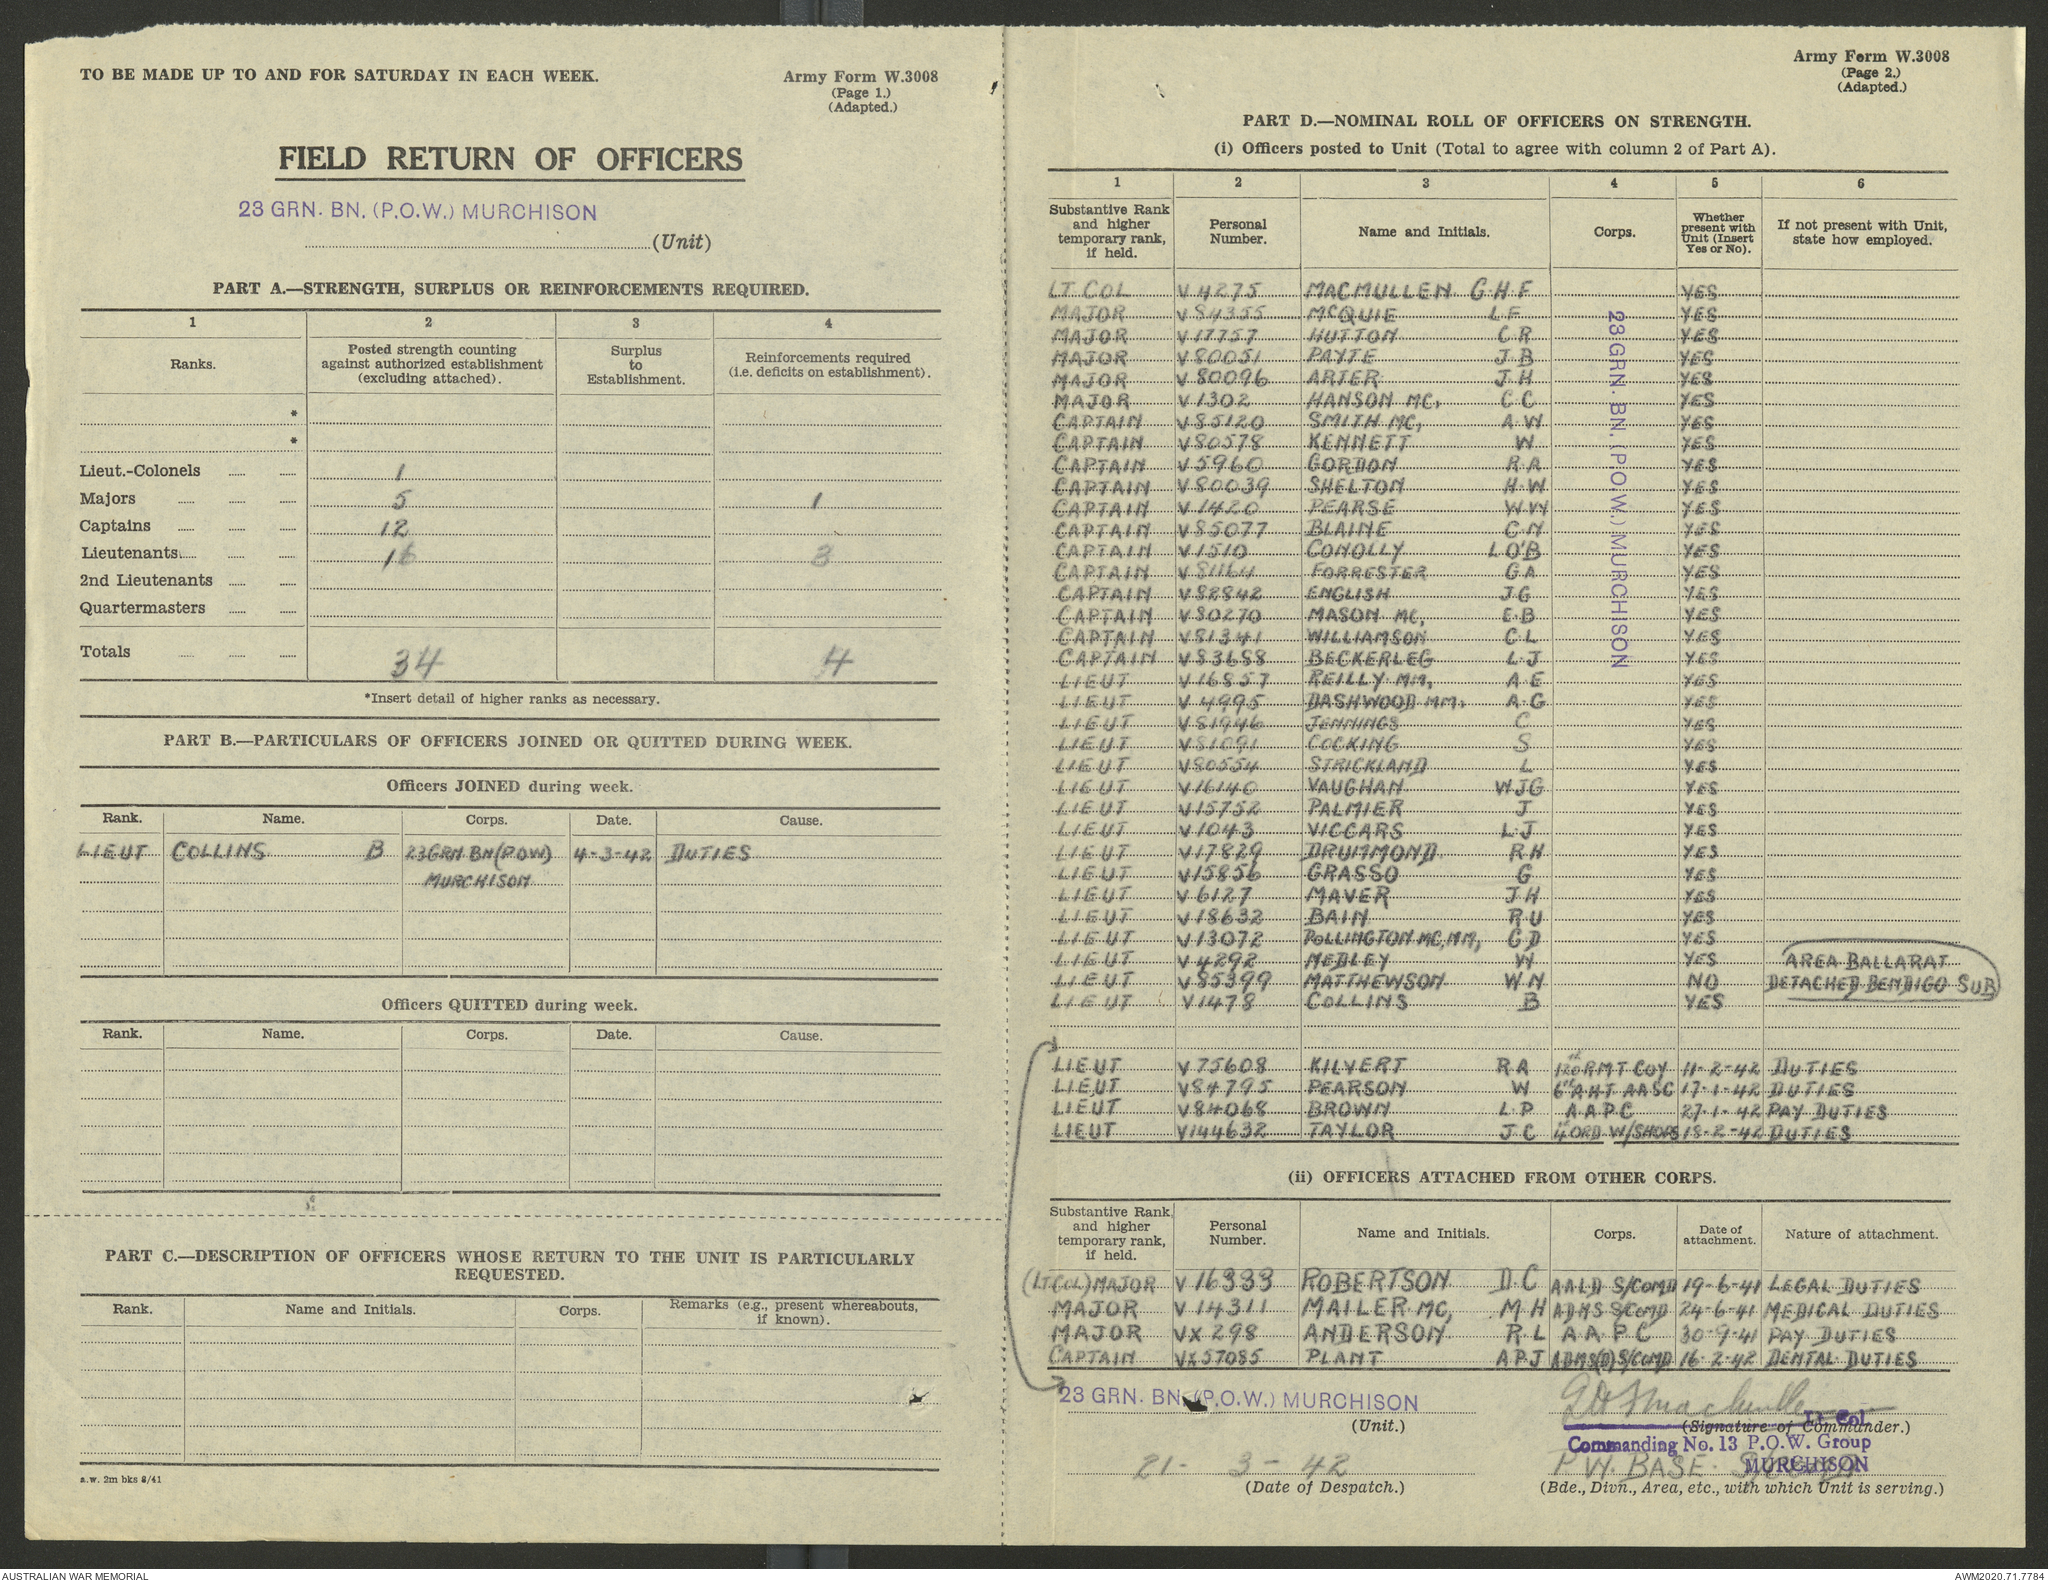 TO BE MADE UP TO AND FOR SATURDAY IN EACH WEEK.
Army Form W.3008
(Page 1.)
(Adapted.)
FIELD RETURN OF OFFICERS
23 GRN. BN. (P.O.W.) MURCHISON
(Unit)
PART A.—STRENGTH, SURPLUS OR REINFORCEMENTS REQUIRED.
1 2 3 4
Ranks. Posted strength counting against authorized establishment (excluding attached). Surplus to Establishment. Reinforcements required (i.e. deficits on establishment).
*
*
Lieut.-Colonels 1
Majors 5 1
Captains 12
Lieutenants 16 3
2nd Lieutenants
Quartermasters
Totals 34 4
*Insert detail of higher ranks as necessary.
PART B.—PARTICULARS OF OFFICERS JOINED OR QUITTED DURING WEEK.
Officers JOINED during week.
Rank. Name. Corps. Date. Cause.
LIEUT COLLINS B 23 GRN BN (POW) 4-3-42 DUTIES
MURCHISON
Officers QUITTED during week.
Rank. Name. Corps. Date. Cause.
PART C.—DESCRIPTION OF OFFICERS WHOSE RETURN TO THE UNIT IS PARTICULARLY
REQUESTED.
Rank. Name and Initials. Corps. Remarks (e.g., present whereabouts, if known).
a.w. 2m bks 8/41
Army Form W.3008
(Page 2.)
(Adapted.)
PART D.—NOMINAL ROLL OF OFFICERS ON STRENGTH.
(i) Officers posted to Unit (Total to agree with column 2 of Part A).
1 2 3 4 5 6
Substantive Rank and higher temporary rank, if held. Personal Number. Name and Initials. Corps. Whether present with Unit (Insert Yes or No). If not present with Unit, state how employed.
LT COL V 4275 MACMULLEN G H F YES
MAJOR V 84355 McQUIE L F YES
MAJOR V 17757 HUTTON C R YES
MAJOR V 80051 PAYTE J B YES
MAJOR V 80096 ARTER J H YES
MAJOR V 1302 HANSON MC, C C YES
CAPTAIN V 85120 SMITH MC, A W YES
CAPTAIN V 80578 KENNETT W YES
CAPTAIN V 5960 GORDON R A YES
CAPTAIN V 80039 SHELTON H W YES
CAPTAIN V 1420 PEARSE W W YES
CAPTAIN V 85077 BLAINE C N YES
CAPTAIN V 1510 CONOLLY L O'B YES
CAPTAIN V 81164 FORRESTER G A YES
CAPTAIN V 82842 ENGLISH J G YES
CAPTAIN V 80270 MASON MC, E B YES
CAPTAIN V 81341 WILLIAMSON C L YES
CAPTAIN V 83688 BECKERLEG L J YES
LIEUT V 16857 REILLY MM, A E YES
LIEUT V 4995 DASHWOOD MM. A G YES
LIEUT V 81946 JENNINGS C YES
LIEUT V 81091 COCKING S YES
LIEUT V 80554 STRICKLAND L YES
LIEUT V 16140 VAUGHAN W J G YES
LIEUT V 15752 PALMIER J YES
LIEUT V 1043 VICCARS L J YES
LIEUT V 17829 DRUMMOND R H YES
LIEUT V 15856 GRASSO G YES
LIEUT V 6127 MAVER J H YES
LIEUT V 18632 BAIN R U YES
LIEUT V 13072 POLLINGTON MC, MM, G D YES
LIEUT V 4292 MEDLEY W YES AREA BALLARAT
LIEUT V 85399 MATTHEWSON W N NO DETACHED BENDIGO SUB
LIEUT V 1478 COLLINS B YES
23 GRN. BN. (P.O.W.) MURCHISON
LIEUT V 75608 KILVERT R A 120 RMT COY 11-2-42 DUTIES
LIEUT V 84795 PEARSON W 6th AHT AASC 17-1-42 DUTIES
LIEUT V 84068 BROWN L P A A P C 27-1-42 PAY DUTIES
LIEUT V 144632 TAYLOR J C 4th ORD W/SHOPS 18-2-42 DUTIES
(ii) OFFICERS ATTACHED FROM OTHER CORPS.
Substantive Rank and higher temporary rank, if held. Personal Number. Name and Initials. Corps. Date of attachment. Nature of attachment.
(LT COL) MAJOR V 16333 ROBERTSON D C A A L D S/COMD 19-6-41 LEGAL DUTIES
MAJOR V 14311 MAILER MC, M H ADMS S/COMD 24-6-41 MEDICAL DUTIES
MAJOR VX 298 ANDERSON R L A A P C 30-9-41 PAY DUTIES
CAPTAIN VX 57085 PLANT A P J ADMS(D) S/COMD 16-2-42 DENTAL DUTIES
23 GRN. BN. (P.O.W.) MURCHISON
(Unit.)
Lt Col
(Signature of Commander.)
Commanding No. 13 P.O.W. Group
MURCHISON
21- 3- 42
P W. BASE
(Date of Despatch.)
(Bde., Divn., Area, etc., with which Unit is serving.)
AUSTRALIAN WAR MEMORIAL
AWM2020.71.7784